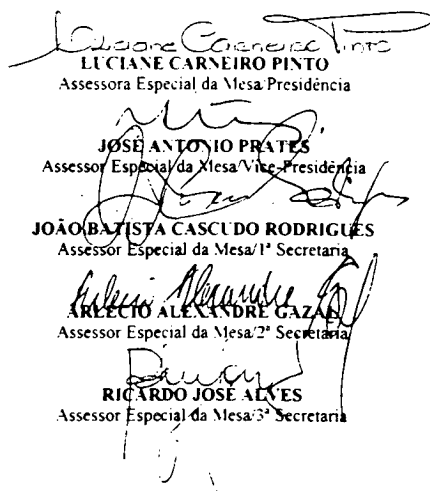 Luciane Carneiro Pinto
LUCIANE CARNEIRO PINTO
Assessora Especial da Mesa/Presidência
JOSÉ ANTONIO PRATES
Assessor Especial da Mesa/Vice-Presidência
JOÃO BATISTA CASCUDO RODRIGUES
Assessor Especial da Mesa/1ª Secretaria
Arlecio Alexandre Gazal
ARLÉCIO ALEXANDRE GAZAL
Assessor Especial da Mesa/2ª Secretaria
RICARDO JOSÉ ALVES
Assessor Especial da Mesa/3ª Secretaria